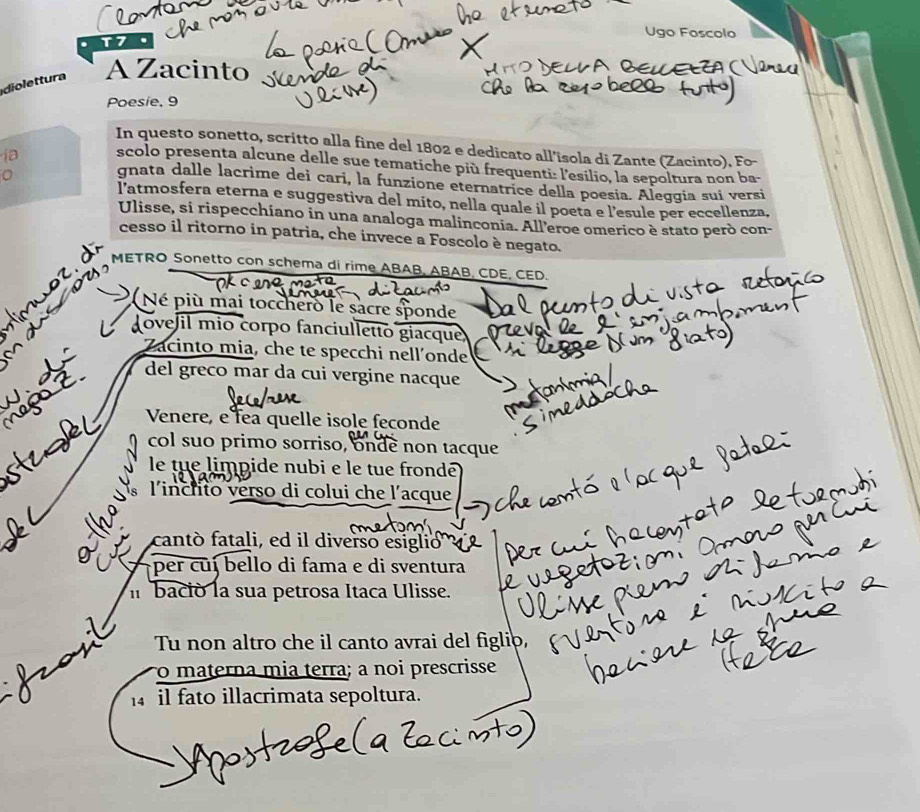 che non
ha eternato
Ugo Foscolo
T7
la poesia (Omero
X
A Zacinto
MITO DELLA BELLEZZA (Venere
diolettura
che ha reso bello tutto)
Poesie, 9
In questo sonetto, scritto alla fine del 1802 e dedicato all'isola di Zante (Zacinto), Fo-
scolo presenta alcune delle sue tematiche più frequenti: l'esilio, la sepoltura non ba-
gnata dalle lacrime dei cari, la funzione eternatrice della poesia. Aleggia sui versi
l'atmosfera eterna e suggestiva del mito, nella quale il poeta e l'esule per eccellenza,
Ulisse, si rispecchiano in una analoga malinconia. All'eroe omerico è stato però con-
cesso il ritorno in patria, che invece a Foscolo è negato.
METRO Sonetto con schema di rime ABAB, ABAB, CDE, CED.
di Zacinto
Né più mai toccherò le sacre sponde
Dal punto di vista retorico
ove il mio corpo fanciulletto giacque,
prevale l'enjambement
Zacinto mia, che te specchi nell'onde
(si legge
del greco mar da cui vergine nacque
metonimia/
simeddoche
fece/rese
Venere, e fea quelle isole feconde
per cui
col suo primo sorriso, onde non tacque
le tue limpide nubi e le tue fronde
l'inclito verso di colui che l'acque
che cantò l'acque fatali
cantò fatali, ed il diverso esiglio
per cui ha cantato le tue nubi
per cui bello di fama e di sventura
e vegetazioni Omero per cui
11 baciò la sua petrosa Itaca Ulisse.
Ulisse pieno di fama e
sventura è riuscito a
Tu non altro che il canto avrai del figlio,
baciare la
o materna mia terra; a noi prescrisse
Itaca
14 il fato illacrimata sepoltura.
Apostrofe (a Zacinto)